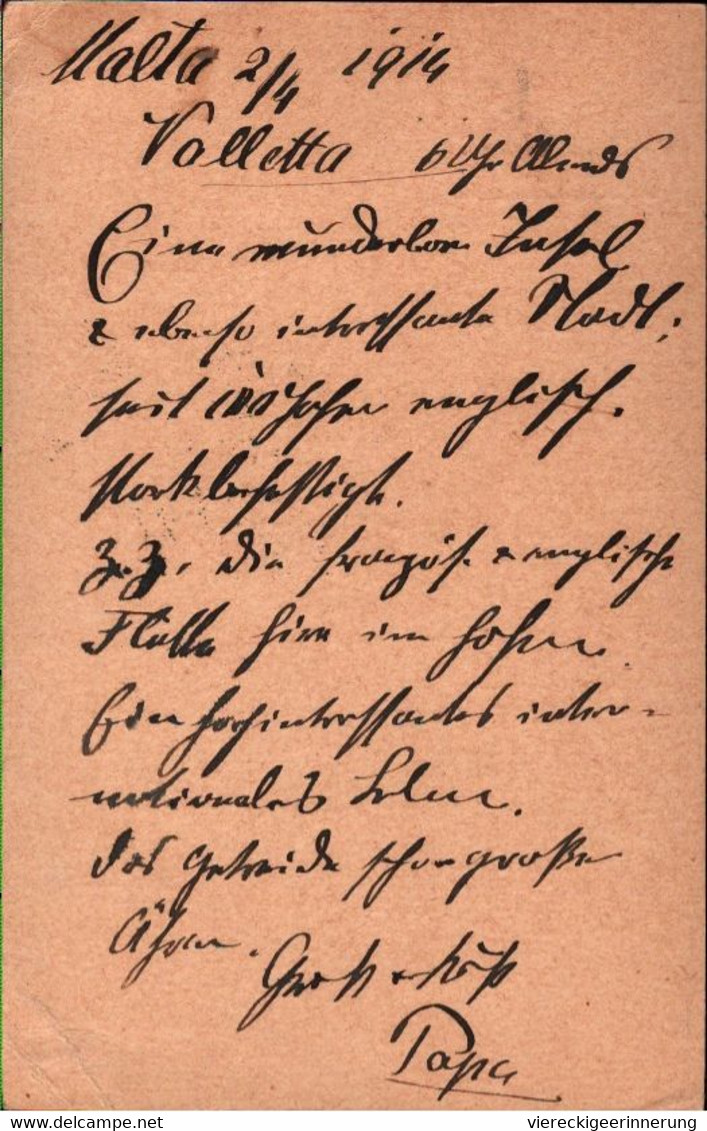 Malta 2/4 1914
Valletta 6 Uhr Abends
Eine wunderbare Insel
& ebenso interessante Stadt;
seit 100 Jahren englisch.
Stark befestigt.
Z. Z. die französ. & englische
Flotte hier im Hafen.
Ein hochinteressantes inter-
nationales Leben.
Das Getreide schon große
Ähren.
Gruß & Kuß
Papa
www.delcampe.net
viereckigeerinnerung